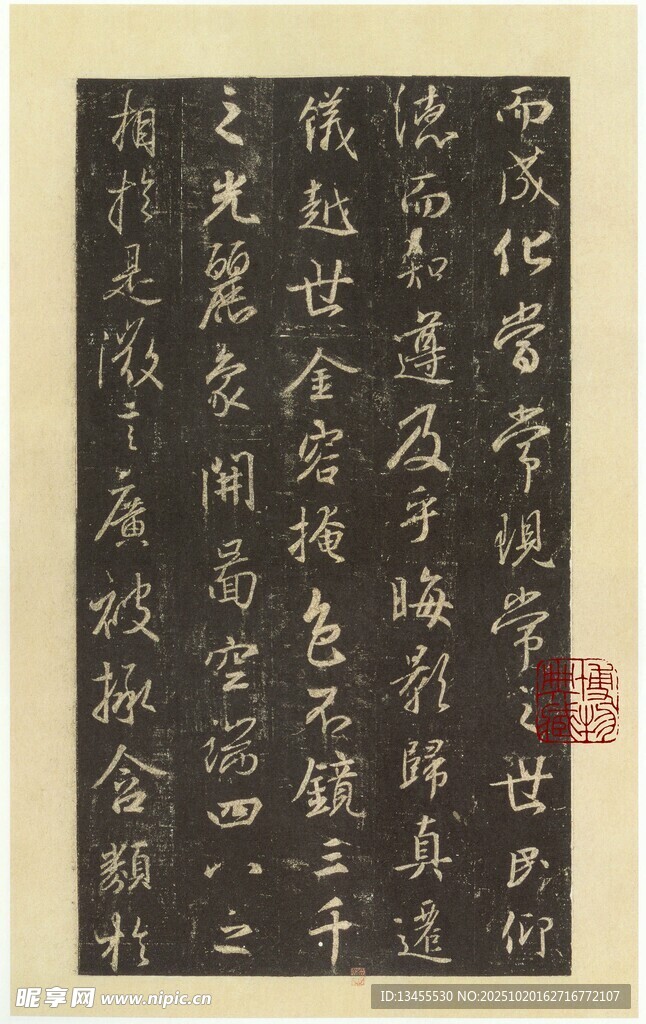 而成化當常現常之世民仰
德而知遵及乎晦影歸真遷
儀越世金容掩色不鏡三千
之光麗象開圖空端四八之
相於是微言廣被拯含類於
博物
典藏
昵享网 www.nipic.cn
ID:13455530 NO:20251020162716772107